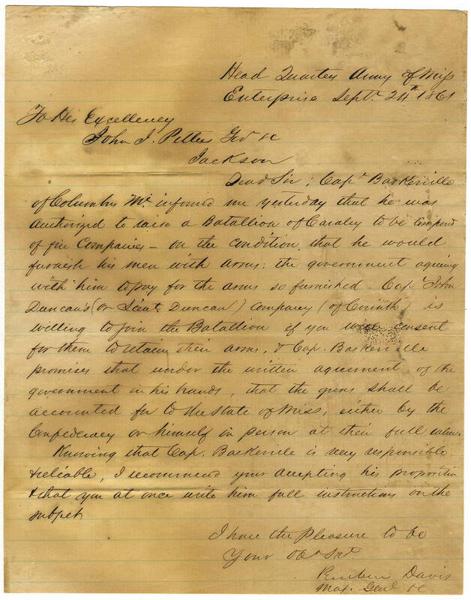 Head Quarters Army of Miss
Enterprise Sept. 24th 1861
To His Excellency
John J. Pettus Gov &c
Jackson
Dear Sir; Capt Baskerville
of Columbus Mi. informed me yesterday that he was
authorized to raise a Batallion of Cavalry to be composed
of five Companies - on the condition that he would
furnish his men with arms; the government agreeing
with him to pay for the arms so furnished. Cap. John
Duncan's (or Lieut. Duncan) Company (of Corinth) is
willing to join the Batallion if you will consent
for them to retain their arms, & Cap. Baskerville
promises that under the written agreement of the
government in his hands, that the guns shall be
accounted for to the State of Miss, either by the
Confederacy or himself in person at their full value.
Knowing that Cap. Baskerville is very responsible
& reliable, I recommend your accepting his proposition
& that you at once write him full instructions on the
subject
I have the pleasure to be
Your Obt Svt
Reuben Davis
Maj. Genl &c